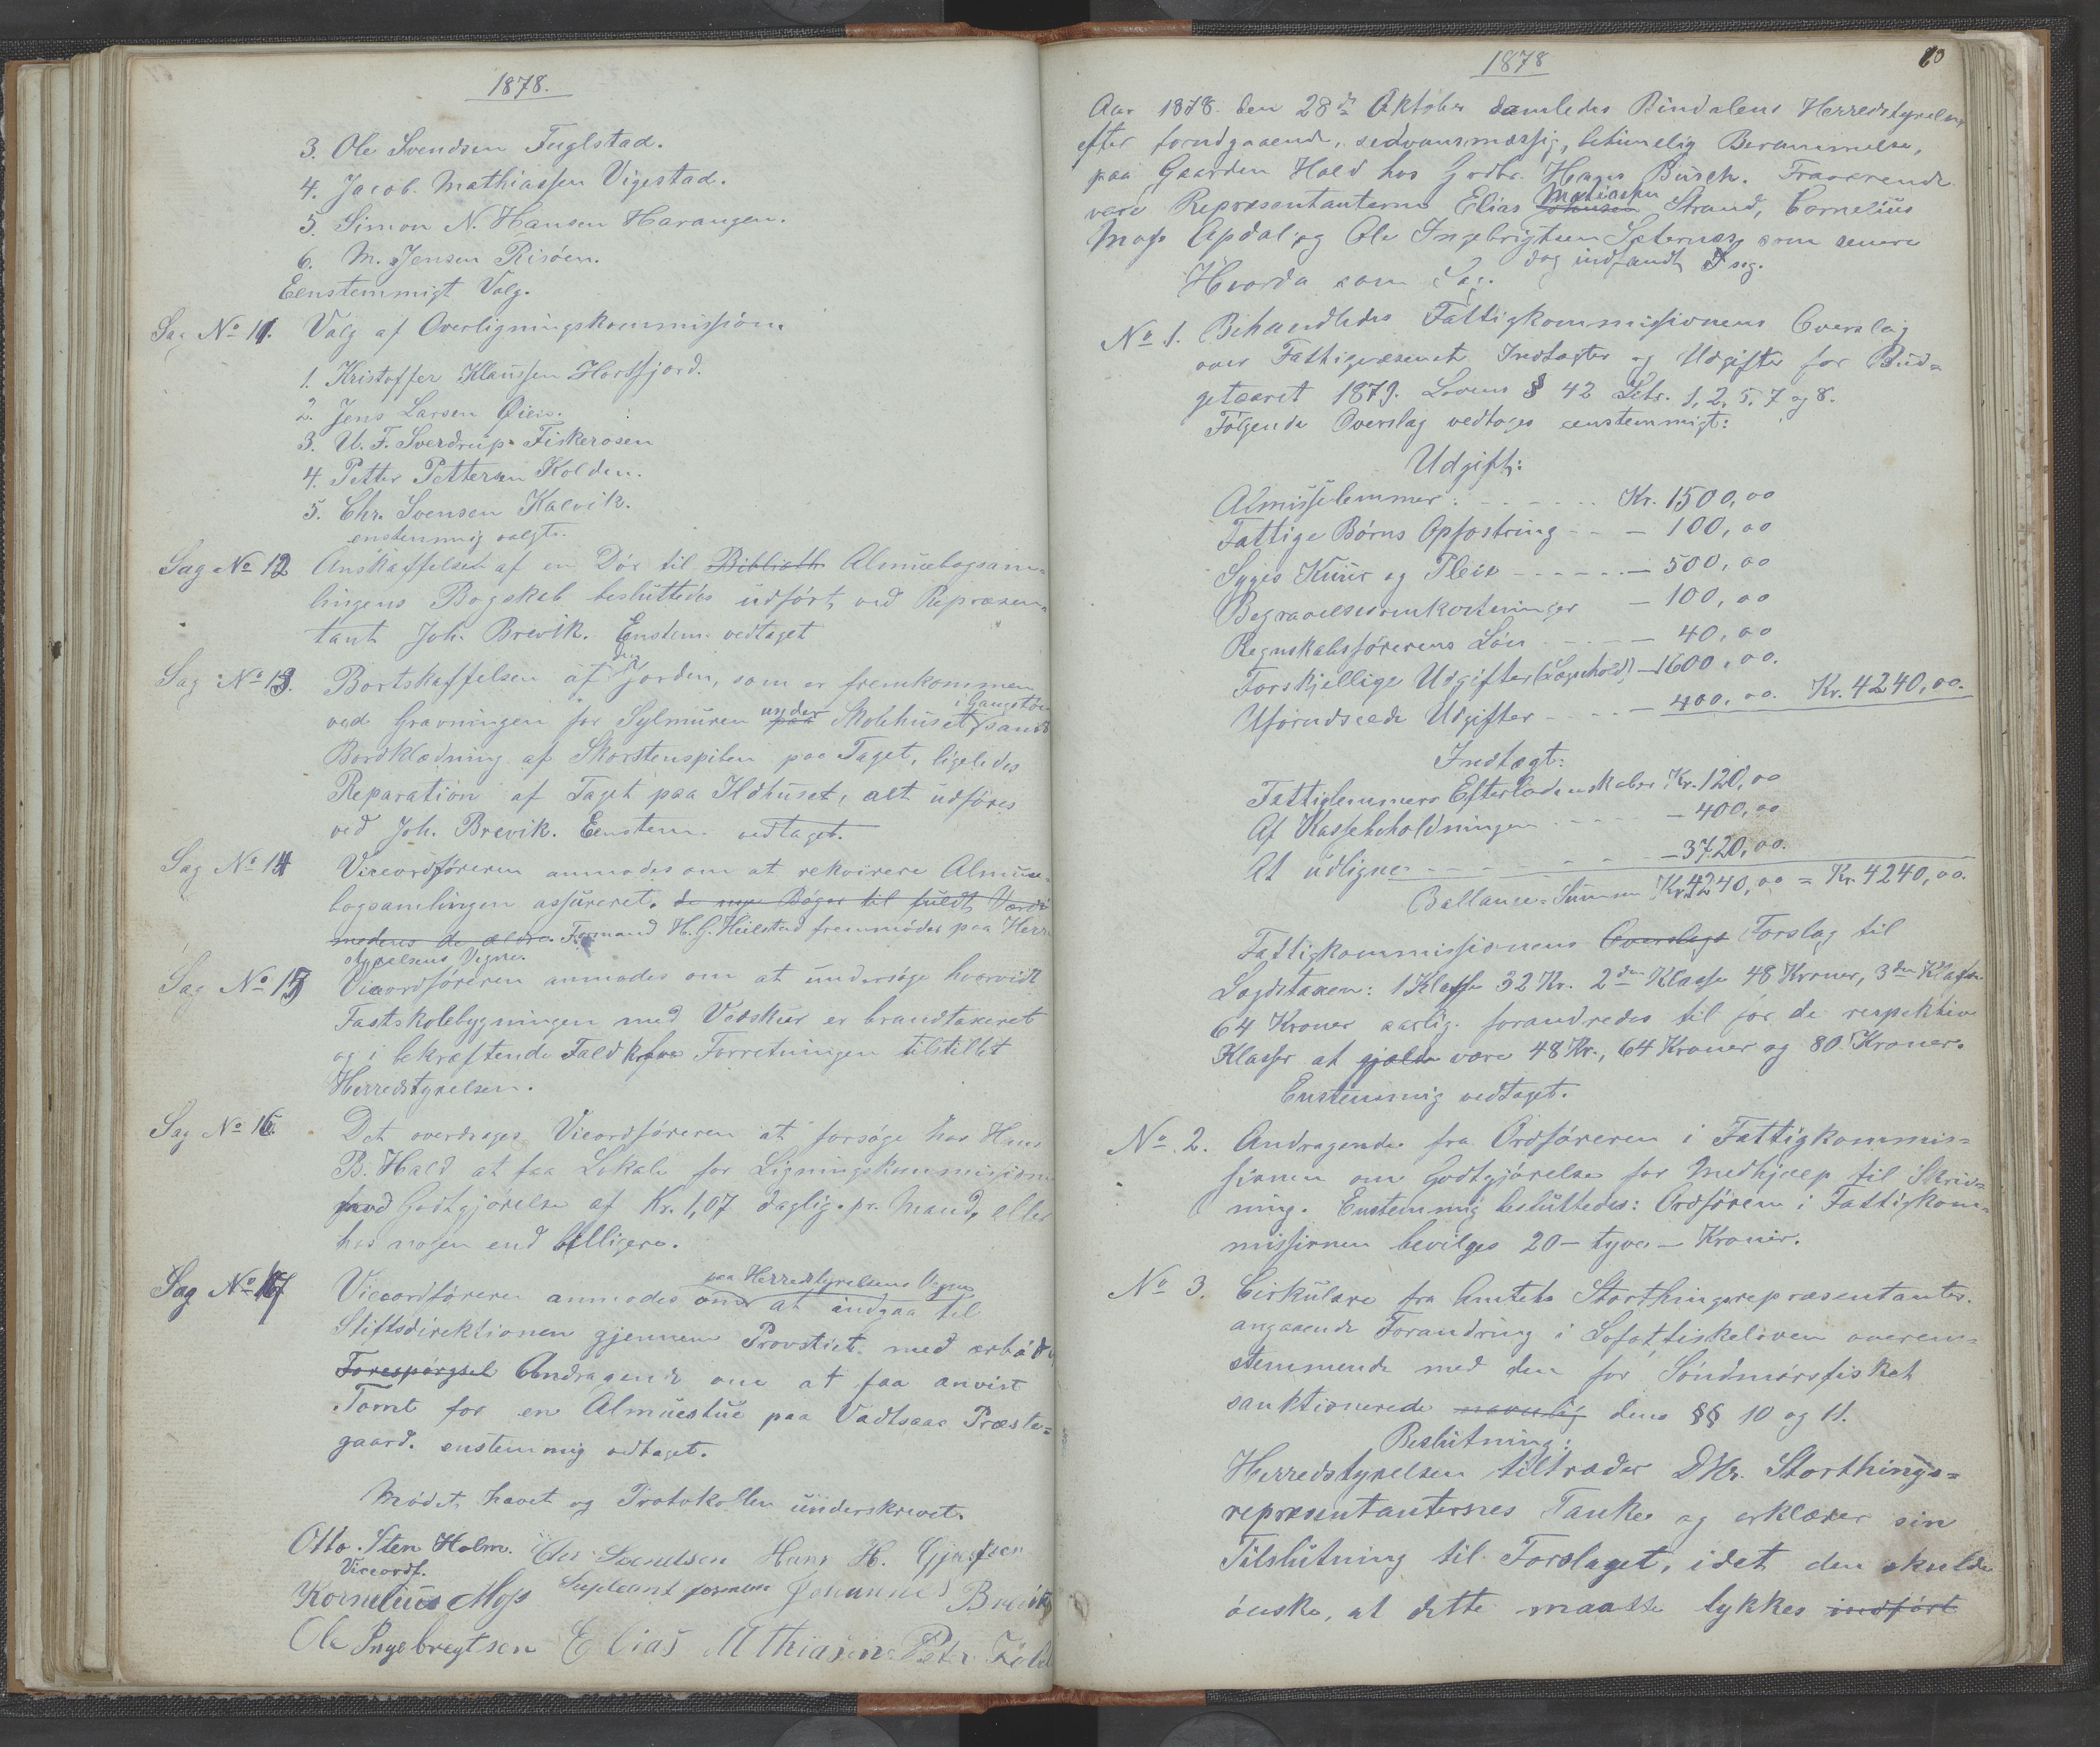 1878.
3. Ole Svendsen Fuglstad.
4. Jacob Mathiassen Vigestad.
5. Simon N. Hansen Harangen.
6. M. Jensen Risöen.
Eenstemmigt Valg.
Sag No 11. Valg af Overligningskommission.
1. Kristoffer Klaussen Horsfjord.
2. Jens Larsen Öien.
3. U. F. Sverdrup Fiskerosen
4. Petter Pettersen Kolden.
5. Chr. Svensen Kalvik.
enstemmig valgt.
Sag No 12 Anskaffelsen af en Dör til Biblioth Almuebogsam-
lingens Bogskab besluttedes udfört ved Repræsen-
tant Joh. Brevik. Enstem. vedtaget
Sag No 13. Bortskaffelsen af den Jorden, som er fremkommen
ved Gravningen for Sylmuren under paa Skolehuset, i Gangstöe samt
Bordklædning af Skorstenspiben paa Taget, ligeledes
Reparation af Taget paa Ildhuset, alt udföres
ved Joh. Brevik. Eenstem. vedtaget.
Sag No 14 Viceordföreren anmodes om at rekvirere Almue-
bogsamlingen assureret. de nye Böger til fuldt Værdi
medens de ældre. Formand H. G. Heilstad fremmödes paa Herr
styrelsens Vegne.
Sag No 15 Viceordföreren anmodes om at undersöge hvorvidt
Fastskolebygningen med Vedskur er brandtaxeret
og i bekræftende Fald kræve Forretningen tilstillet
Herredstyrelsen.
Sag No 16. Det overdrages Viceordföreren at forsöge hos Hans
B. Hald at faa Lokale for Ligningskommissionen
mod Godtgjörelse af Kr. 1,07 daglig pr. Mand, eller
hos nogen end billigere.
Sag No 17 Viceordföreren anmodes om paa Herredstyrelsens Vegne at indgaa til
Stiftsdirektionen gjennem Provstiet med ærbödig
Forespörgsel Andragende om at faa anvist
Tomt for en Almuestue paa Vadtsaas Præste-
gaard. enstemmig vedtaget.
Mödet hævet og Protokollen underskrevet.
Otto Sten Holm. Svendsen Hans H.
Viceordf.
Kornelius Moss Supleant Johannes Brevik
Ole Ingebregtsen Elias Mthiasen Peter
1878
60
Aar 1878 den 28de Oktober samledes Bindalens Herredstyrelse,
efter forudgaaende, sedvansmæssig, betimelig Berammelse,
paa Gaarden Hald hos Grdbr. Hans Busch. Fraværende
vare Repræsentanterne Elias Johnsen Mathiassen Strand, Cornelius
Moss Apdal og Ole Ingebrigtsen Sæternæs, som senere
dog indfandt sig.
Hvorda som Sag.
No 1. Behandledes Fattigkommissionens Overslag
over Fattigvæsenets Indtægter og Udgifter for Bud-
getaaret 1879. Lovens § 42 Litr. 1, 2, 5, 7 og 8.
Fölgende Overslag vedtages eenstemmigt:
Udgift:
Almisselemmer: - - - - - Kr. 1500,00
Fattige Börns Opfostring - - - 100,00
Syges Kuur og Pleie - - - - - - 500,00
Begravelsesomkostninger - 100,00
Regnskabsförerens Lön - - - - 40,00
Forskjellige Udgifter (Lægnhold) - 1600,00.
Uforudseede Udgifter - - - - 400,00. Kr. 4240,00.
Indtægt:
Fattiglemmers Efterladenskaber Kr. 120,00
Af Kassebeholdningen - - - - - 400,00
At udligne - - - - - - 3720,00.
Ballance-Summen Kr. 4240,00 = Kr. 4240,00.
Fattigkommissionens Overslags Forslag til
Lægdstaxen: 1 Klasse 32 Kr. 2den Klasse 48 Kroner, 3den Klasse
64 Kroner aarlig forandredes til for de respektive
Klasser at gjælde være 48 Kr., 64 Kroner og 80 Kroner.
Enstemmig vedtaget.
No 2. Andragende fra Ordföreren i Fattigkommis-
sionen om Godtgjörelse for Medhjælp til Skriv-
ning. Enstemmig besluttedes: Ordföreren i Fattigkom-
missionen bevilges 20 - tyve - Kroner.
No 3. Cirkulære fra Amtets Storthingsrepræsentanter
angaaende Forandring i Lofotfiskeloven overens-
stemmende med den for Söndmörsfisket
sanktionerede navnlig dens §§ 10 og 11.
Beslutning:
Herredstyrelsen tiltræder DHr. Storthings-
repræsentanternes Tanke og erklærer sin
Tilslutning til Forslaget, idet den skulde
önske, at dette maatte lykkes indfört